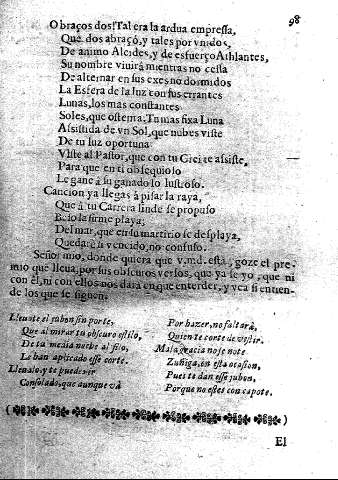 98
O braços dos! Tal era la ardua empressa,
Que dos abraçò, y tales por vnidos,
De animo Alcides, y de esfuerço Athlantes,
Su nombre viuirà mientras no cessa
De alternar en sus exes no dormidos
La Esfera de la luz con sus errantes
Lunas, los mas constantes
Soles, que ostenta; Tu mas fixa Luna
Assistida de vn Sol, que nubes viste
De tu luz oportuna
Viste al Pastor, que con tu Grei te assiste,
Para que en ti obsequiolo
Le gane à su ganado lo lustroso.
Cancion ya llegas à pisar la raya,
Que à tu Carrera linde se propuso
Bejo la firme playa;
Del mar, que en su martirio se desplaya,
Quedarà si vencido, no confuso.
Señor mio, donde quiera que v.md. està, goze el pre-
mio que lleua, por sus obscuros versos, que ya se yo, que ni
con èl, ni con ellos nos darà en que entender, y vea si entien-
de los que se siguen.
Lleuate el jubon sin porte,
Que al mirar tu obscuro estilo,
De tu media noche al filo,
Le han aplicado esse corte.
Lleualo, y te puedes ir
Consolado, que aunque và
Por hazer, no faltarà,
Quien te corte de vestir.
Mala gracia no se note
Zuñiga, en esta ocasion,
Pues te dan esse jubon,
Porque no estes con capote.
El